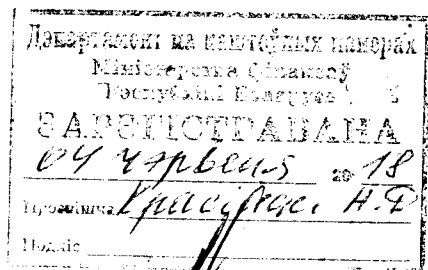 Дэпартамент па каштоўных паперах
Міністэрства фінансаў
Рэспублікі Беларусь
ЗАРЭГІСТРАВАНА
04 чэрвеня 2018
Н.Д
Подпіс